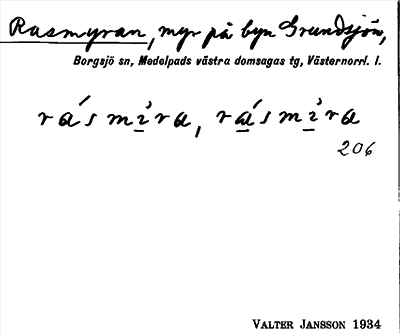 Rasmyran, myr på byn Grundsjön,
Borgsjö sn, Medelpads västra domsagas tg, Västernorrl. l.
rásmịra, rásmịra
206
VALTER JANSSON 1934